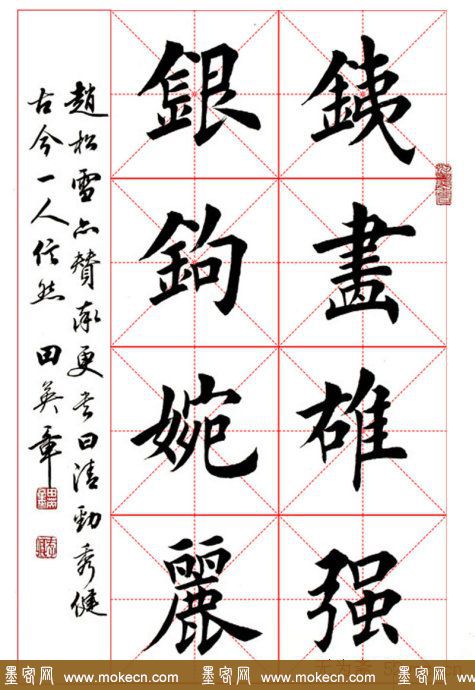 銕畫雄强
銀鉤婉麗
趙松雪亦贊率更書曰清勁秀健
古今一人信然 田英章
墨客网 www.mokecn.com 墨客网 www.mokecn.com 墨客网 www.mokecn.com